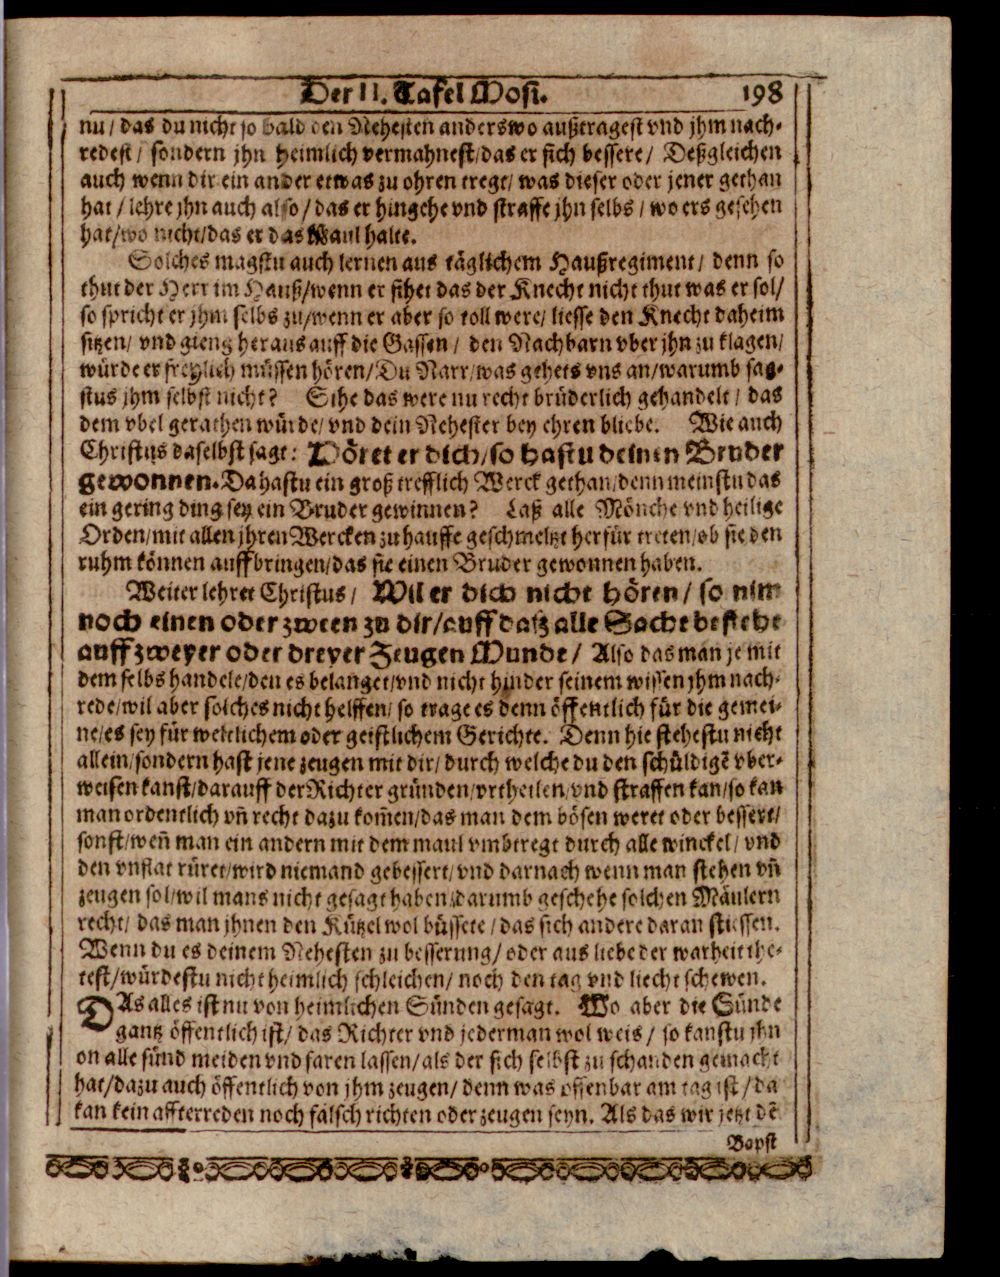 Der II. Tafel Mosi. 198
nu / das du nicht so bald den Nehesten anderswo außtragest vnd jhm nach-
redest / sondern jhn heimlich vermahnest/das er sich bessere / Deßgleichen
auch wenn dir ein ander etwas zu ohren tregt/ was dieser oder jener gethan
hat / lehre jhn auch also / das er hingehe vnd straffe jhn selbs / wo ers gesehen
hat/wo nicht/das er das Maul halte.
Solches magstu auch lernen aus täglichem Haußregiment / denn so
thut der Herr im Hauß/wenn er sihet das der Knecht nicht thut was er sol/
so spricht er jhm selbs zu/wenn er aber so toll were/ liesse den Knecht daheim
sitzen/ vnd gieng heraus auff die Gassen / den Nachbarn vber jhn zu klagen/
würde er freylich müssen hören/Du Narr/was gehets vns an/warumb sag-
stus jhm selbst nicht? Sihe das were nu recht brüderlich gehandelt / das
dem vbel gerathen würde/ vnd dein Nehester bey ehren bliebe. Wie auch
Christus daselbst sagt: Höret er dich/so hastu deinen Bruder
gewonnen. Da hastu ein groß trefflich Werck gethan/denn meinstu das
ein gering ding sey ein Bruder gewinnen? Laß alle Mönche vnd heilige
Orden/mit allen jhren Wercken zu hauffe geschmeltzt herfür treten/ob sie den
ruhm können auffbringen/das sie einen Bruder gewonnen haben.
Weiter lehret Christus / Wil er dich nicht hören / so nim
noch einen oder zween zu dir/auff daß alle Sache bestehe
auff zweyer oder dreyer Zeugen Munde / Also das man je mit
dem selbs handele/den es belanget/vnd nicht hinder seinem wissen jhm nach-
rede/wil aber solches nicht helffen/ so trage es denn öffentlich für die gemei-
ne/es sey für weltlichem oder geistlichem Gerichte. Denn hie stehestu nicht
allein/sondern hast jene zeugen mit dir/ durch welche du den schüldigē vber-
weisen kanst/darauff der Richter gründen/vrtheilen/vnd straffen kan/so kan
man ordentlich vn̄ recht dazu kom̄en/das man dem bösen weret oder bessert/
sonst/wen̄ man ein andern mit dem maul vmbtregt durch alle winckel / vnd
den vnflat rüret/wird niemand gebessert/ vnd darnach wenn man stehen vn̄
zeugen sol/wil mans nicht gesagt haben/darumb geschehe solchen Mäulern
recht/ das man jhnen den Kützel wol büssete / das sich andere daran stiessen.
Wenn du es deinem Nehesten zu besserung/ oder aus liebe der warheit the-
test/würdestu nicht heimlich schleichen/ noch den tag vnd liecht schewen.
DAs alles ist nu von heimlichen Sünden gesagt. Wo aber die Sünde
gantz öffentlich ist/ das Richter vnd jederman wol weis / so kanstu jhn
on alle sünd meiden vnd faren lassen/als der sich selbst zu schanden gemacht
hat/dazu auch öffentlich von jhm zeugen/ denn was offenbar am tag ist / da
kan kein affterreden noch falsch richten oder zeugen seyn. Als das wir jetzt dē
Bapst